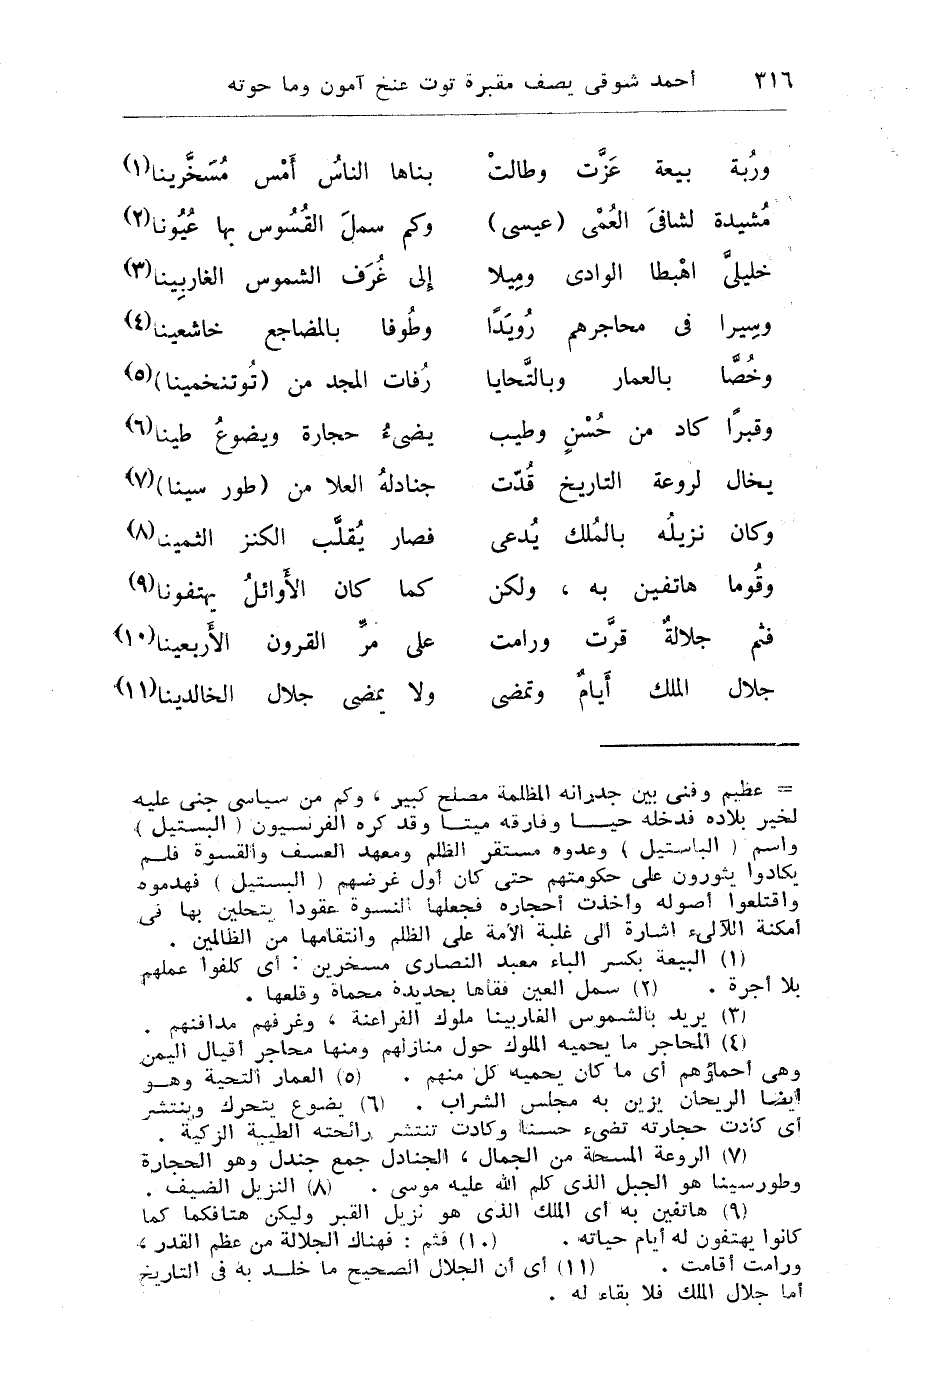 ٣١٦ أحمد شوقى يصف مقبرة توت عنخ آمون وما حوته
ورُبة بيعة عَزَّت وطالتْ بناها الناسُ أَمْس مُسَخَّرينا(١)
مُشيدة لشافىَ العُمْى (عيسى) وكم سملَ القُسُوس بها عُيُونا(٢)
خليلىَّ اهْبطا الوادى ومِيلا إلى غُرَف الشموس الغاربِينا(٣)
وسِيرا فى محاجرهم رُوَيدًا وطُوفا بالمضاجع خاشعينا(٤)
وخُصَّا بالعمار وبالتَّحايا رُفات المجد من (تُوتنخمينا)(٥)
وقبرًا كاد من حُسْنٍ وطيب يضىءُ حجارة ويضوعُ طينا(٦)
يخال لروعة التاريخ قُدّت جنادلهُ العلا من (طور سينا)(٧)
وكان نزيلُه بالمُلك يُدعى فصار يُقلَّب الكنز الثمينا(٨)
وقُوما هاتفين به ، ولكن كما كان الأَوائلُ يهتفونا(٩)
فثم جلالةٌ قرَّت ورامت على مرِّ القرون الأَربعينا(١٠)
جلال الملك أَيامٌ وتمضى ولا يمضى جلال الخالدينا(١١)
= عظيم وفنى بين جدرانه المظلمة مصلح كبير ، وكم من سياسى جنى عليه
لخير بلاده فدخله حيـــا وفارقه ميتــا وقد كره الفرنسيون ( البستيل )
واسم ( الباستيل ) وعدوه مستقر الظلم ومعهد العسف والقسوة فلــم
يكادوا يثورون على حكومتهم حتى كان أول غرضهم ( البستيل ) فهدموه
واقتلعوا أصوله وأخذت أحجاره فجعلها النسوة عقودا يتحلين بها فى
أمكنة اللآلىء اشارة الى غلبة الأمة على الظلم وانتقامها من الظالمين .
(١) البيعة بكسر الباء معبد النصارى مسخرين : أى كلفوا عملهم
بلا أجرة . (٢) سمل العين فقأها بحديدة محماة وقلعها .
(٣) يريد بالشموس الغاربينا ملوك الفراعنة ، وغرفهم مدافنهم .
(٤) المحاجر ما يحميه الملوك حول منازلهم ومنها محاجر أقيال اليمن
وهى أحماؤهم أى ما كان يحميه كل منهم . (٥) العمار التحية وهــو
أيضا الريحان يزين به مجلس الشراب . (٦) يضوع يتحرك وينتشر
أى كادت حجارته تضىء حسنا وكادت تنتشر رائحته الطيبة الزكية .
(٧) الروعة المسحة من الجمال ، الجنادل جمع جندل وهو الحجارة
وطورسينا هو الجبل الذى كلم الله عليه موسى . (٨) النزيل الضيف .
(٩) هاتفين به أى الملك الذى هو نزيل القبر وليكن هتافكما كما
كانوا يهتفون له أيام حياته . (١٠) فثم : فهناك الجلالة من عظم القدر ،
ورامت أقامت . (١١) أى أن الجلال الصحيح ما خلــد به فى التاريخ
أما جلال الملك فلا بقاء له .